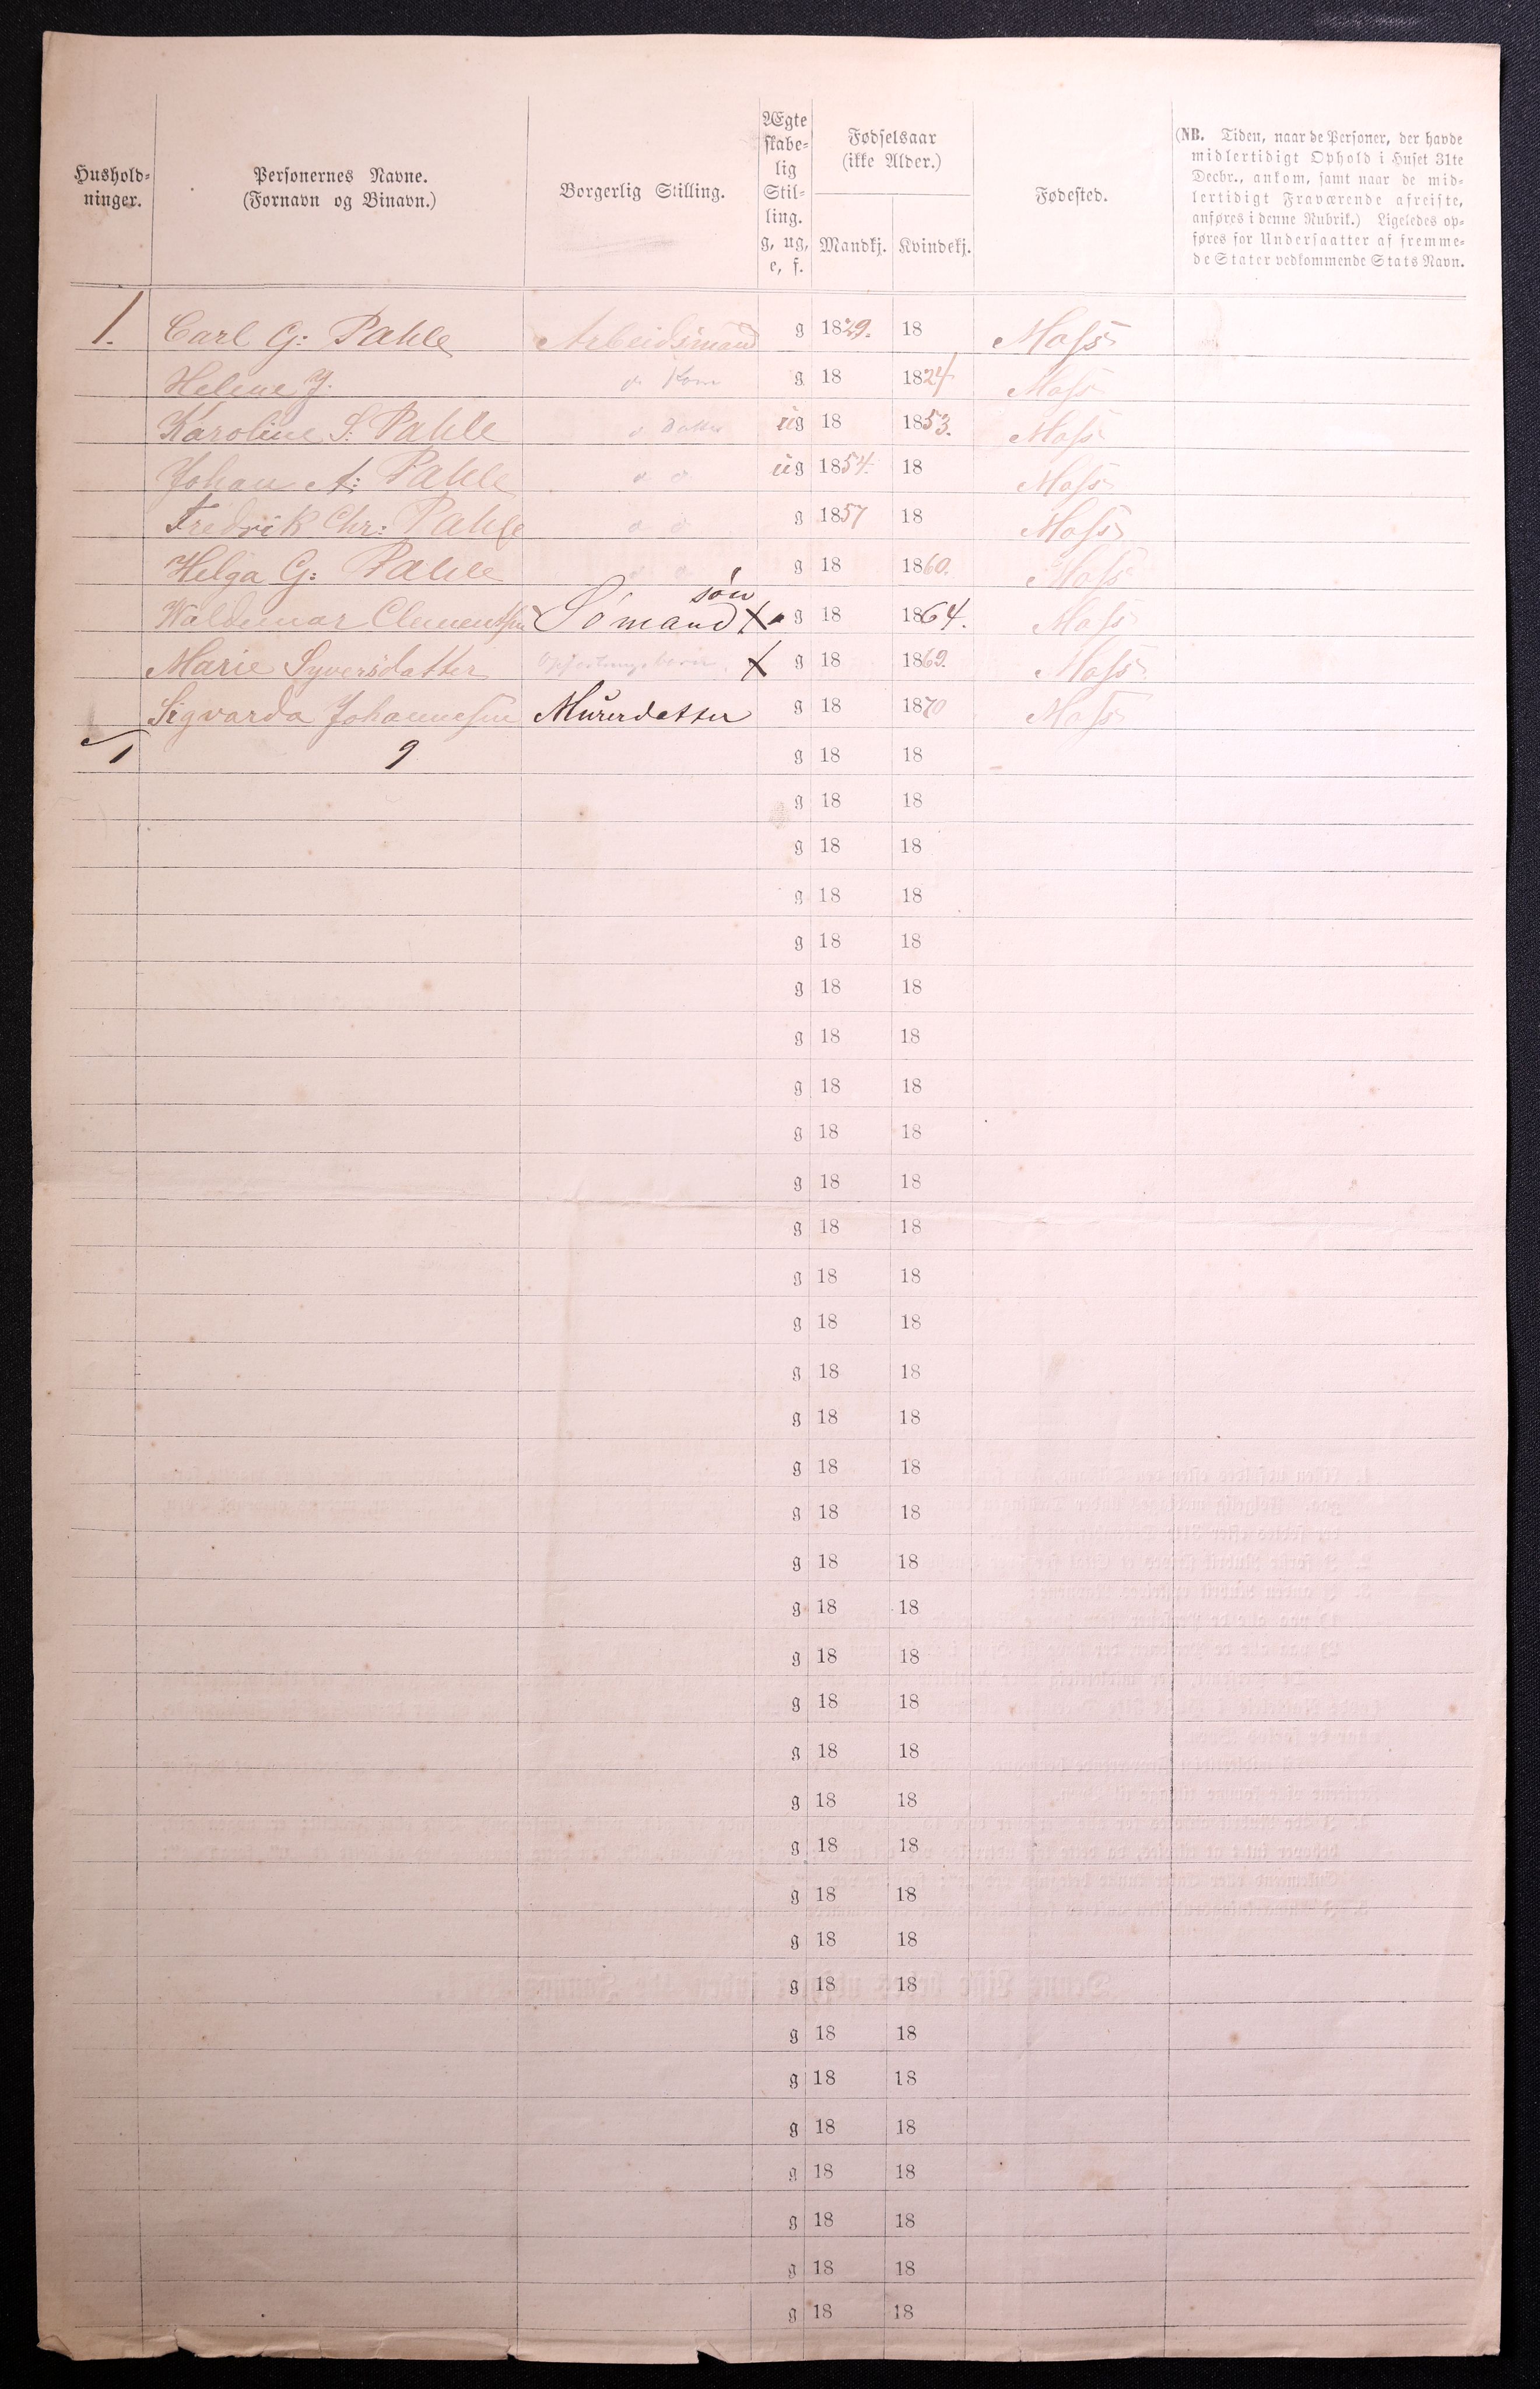 Hushold-
ninger.
Personernes Navne.
(Fornavn og Binavn.)
Borgerlig Stilling.
Ægte
skabe-
lig
Stil-
ling.
g, ug,
e, f.
Fødselsaar
(ikke Alder.)
Mandkj. Kvindekj.
Fødested.
(NB. Tiden, naar de Personer, der havde
midlertidigt Ophold i Huset 31te
Decbr., ankom, samt naar de mid-
lertidigt Fraværende afreiste,
anføres i denne Rubrik.) Ligeledes op-
føres for Undersaatter af fremme-
de Stater vedkommende Stats Navn.
1. Carl G: Pahle Arbeidsmand g 1829. 18 Moss
Helene J. d. Kone g 18 1824 Moss
Karoline S: Pahle d Datter ug 18 1853. Moss
Johan A: Pahle d d ug 1854. 18 Moss
Fredrik Chr: Pahle d d g 1857 18 Moss
Helga G: Pahle d d g 18 1860. Moss
søn
Waldemar Clementsen Sømand X g 18 1864. Moss
Marie Syversdatter Opfostringsbarn. X g 18 1869. Moss
Sigvarda Johannesen Murerdatter g 18 1870 Moss
1 9 g 18 18
g 18 18
g 18 18
g 18 18
g 18 18
g 18 18
g 18 18
g 18 18
g 18 18
g 18 18
g 18 18
g 18 18
g 18 18
g 18 18
g 18 18
g 18 18
g 18 18
g 18 18
g 18 18
g 18 18
g 18 18
g 18 18
g 18 18
g 18 18
g 18 18
g 18 18
g 18 18
g 18 18
g 18 18
g 18 18
g 18 18
g 18 18
g 18 18
g 18 18